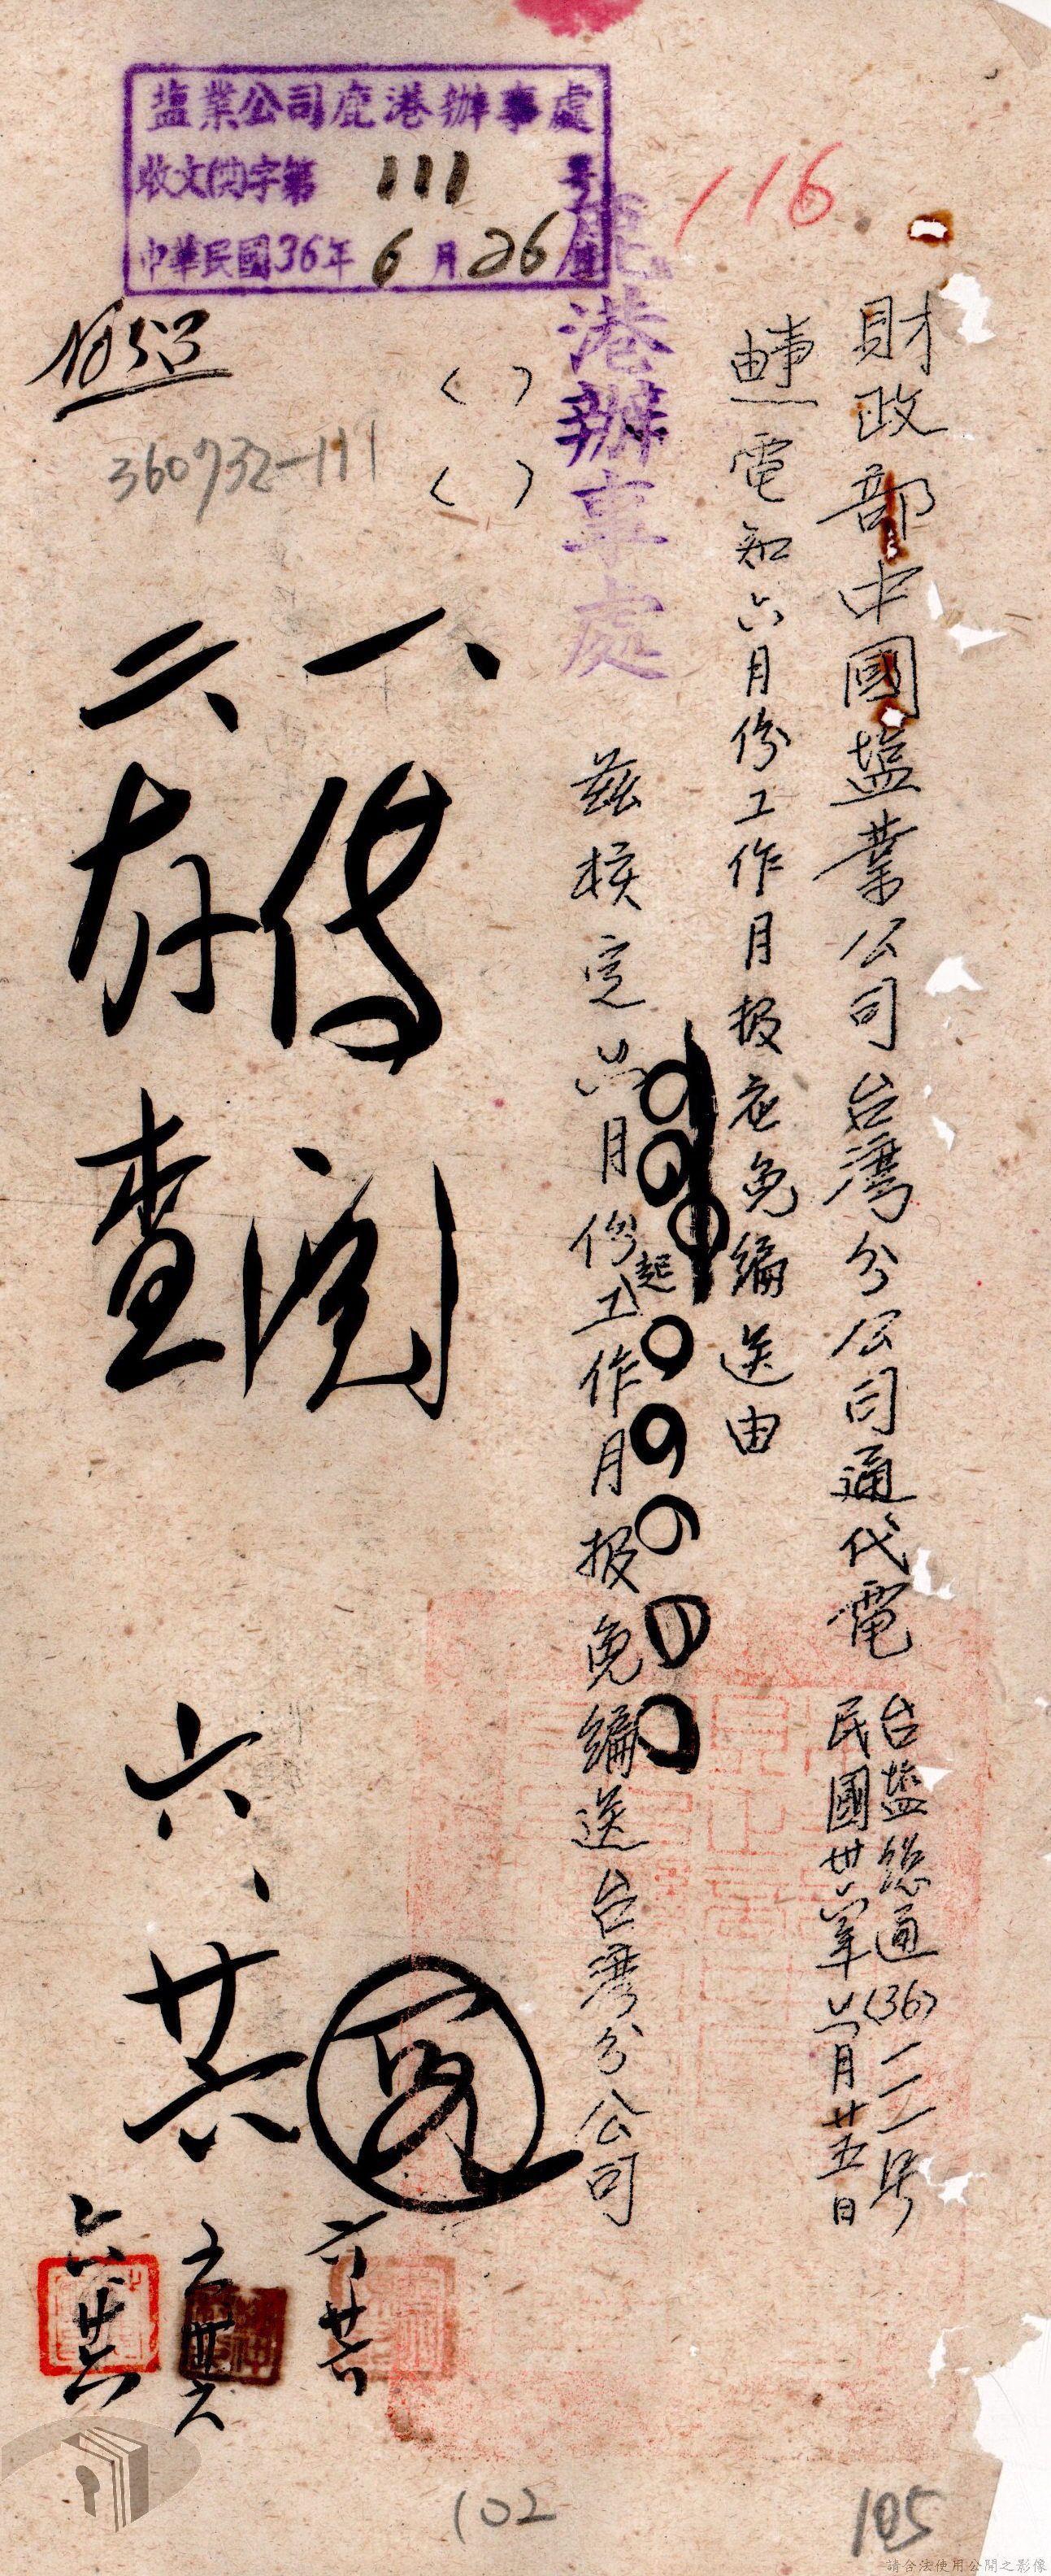 116
財政部中國塩業公司台灣分公司通代電
台塩總通(36)一二一号
民國卅六年六月廿五日
事由 電知六月份工作月报應免編送由
鹿港辦事處
茲核定六月份起工作月报免編送台灣分公司
塩業公司鹿港辦事處
收文(共)字第 111 號
中華民國36年6月26日
360732-111
( )
( )
一、傳閱
二、存查
六、廿六
六廿六
六廿六
六廿六
102
105
請合法使用公開之影像